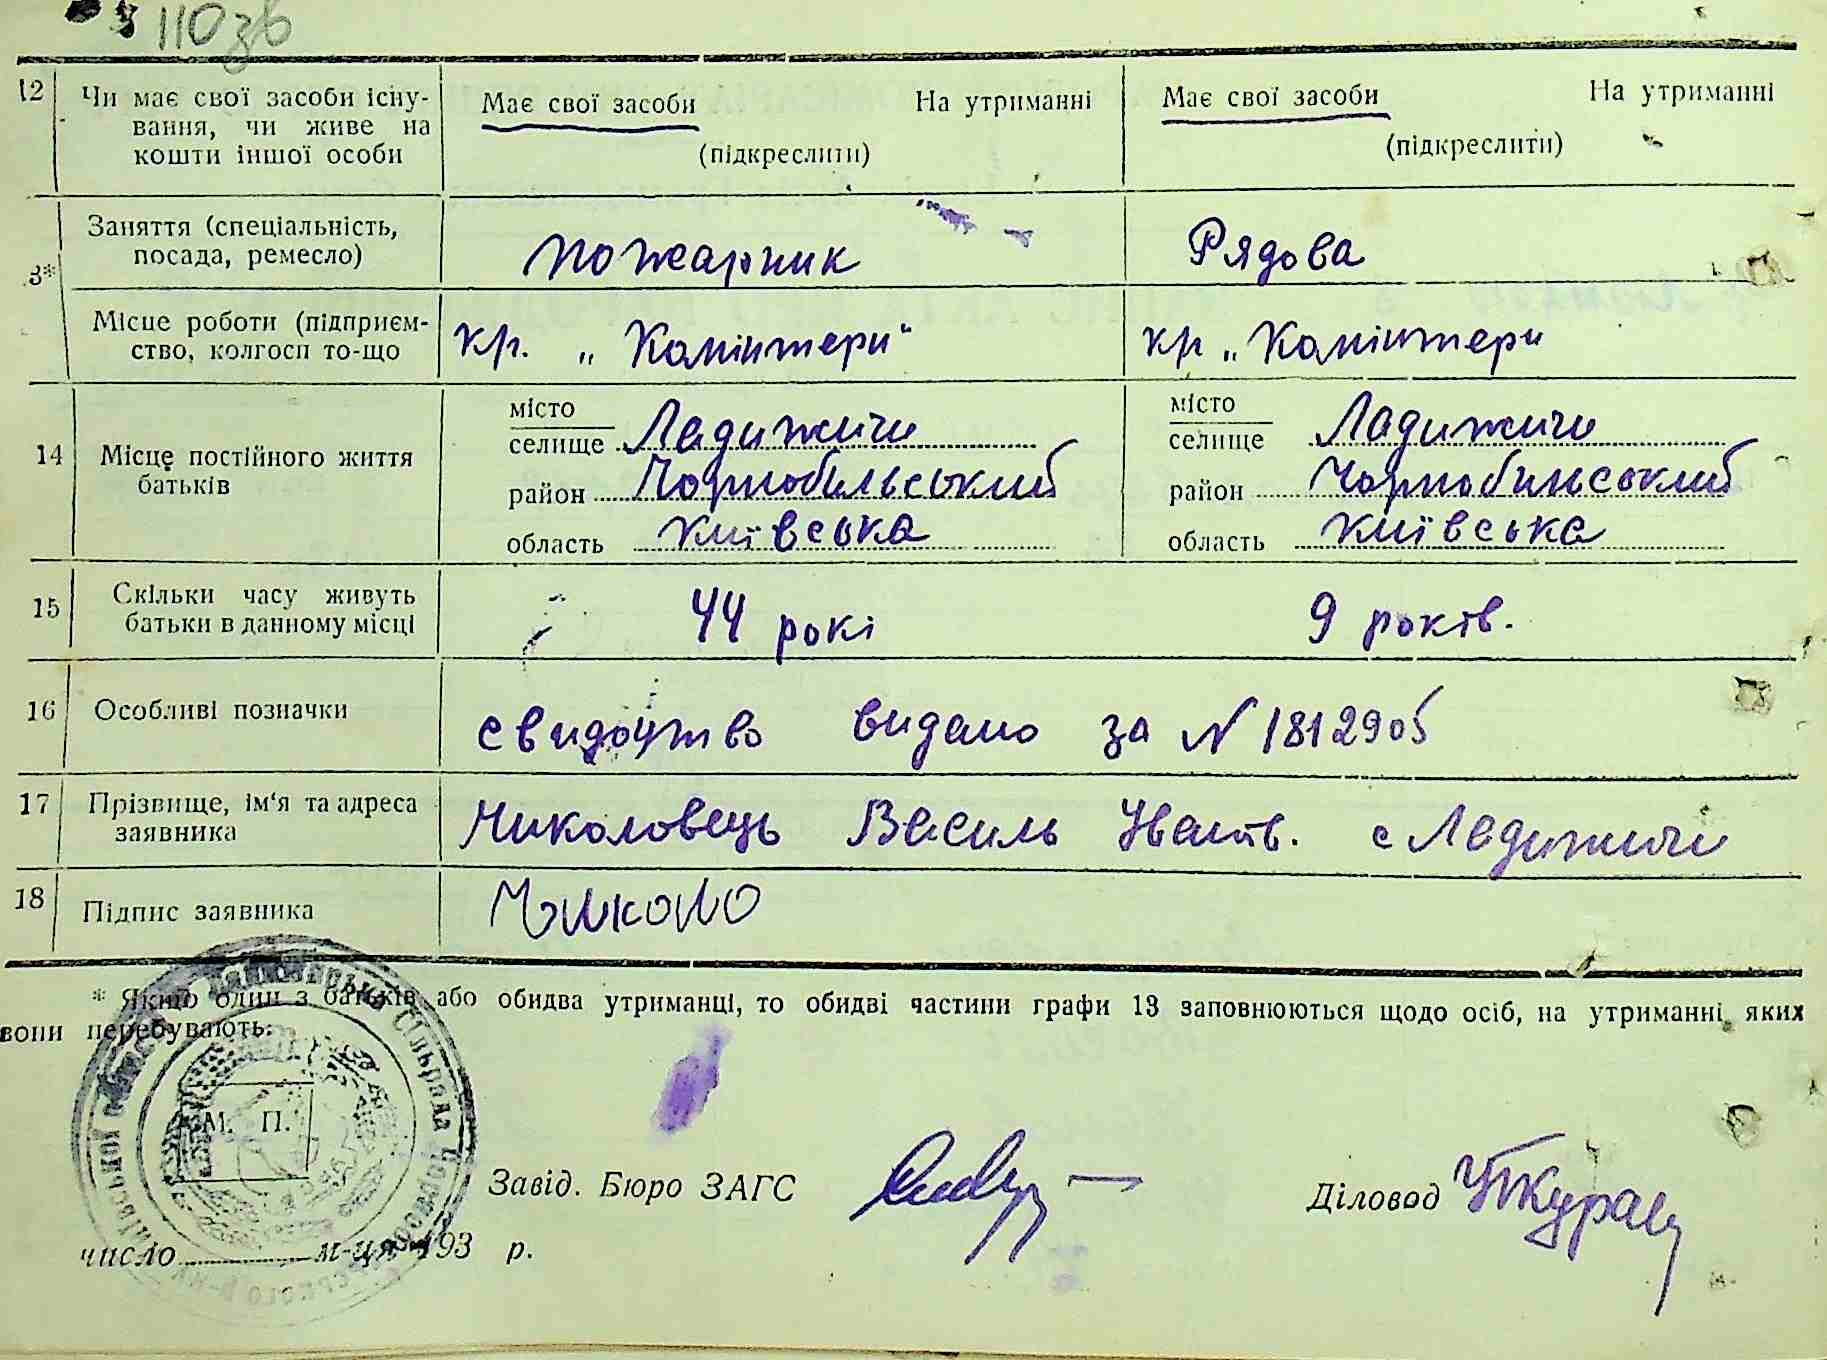 110зв
12 Чи має свої засоби існу-
вання, чи живе на
кошти іншої особи
Має свої засоби На утриманні
(підкреслити)
Має свої засоби На утриманні
(підкреслити)
3*
Заняття (спеціальність,
посада, ремесло)
пожарник
Рядова
Місце роботи (підприєм-
ство, колгосп то-що
кр. „Комінтерн"
кр „Комінтерн
14 Місце постійного життя
батьків
місто
селище Ладижичи
район Чорнобильський
область Київська
місто
селище Ладижичи
район Чорнобильський
область Київська
15 Скільки часу живуть
батьки в данному місці
44 рокі
9 років.
16 Особливі позначки
свидоцтво видано за N 1812905
17 Прізвище, ім'я та адреса
заявника
Миколовець Василь Іванов. с Ладижичи
18 Підпис заявника
* Якщо один з батьків або обидва утриманці, то обидві частини графи 13 заповнюються щодо осіб, на утриманні яких
вони перебувають.
М. П.
Завід. Бюро ЗАГС
Діловод
число м-ця 193 р.